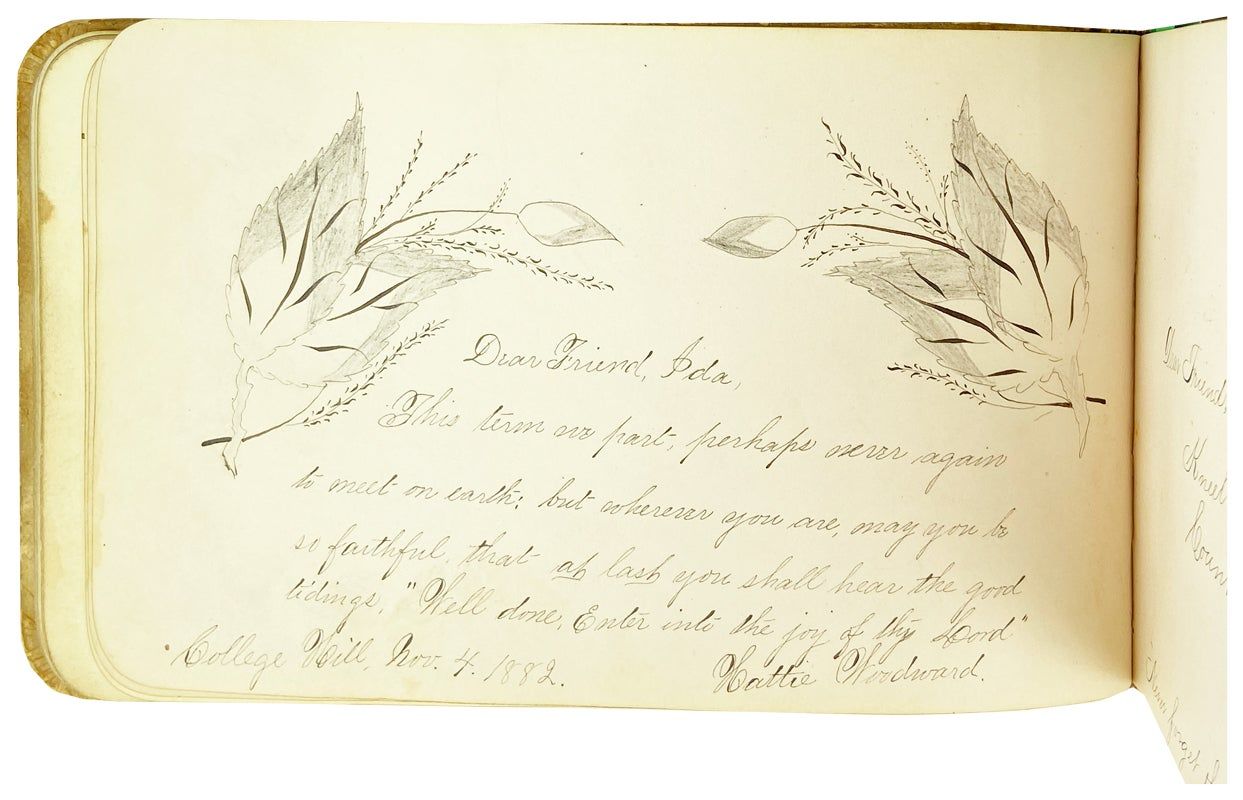 Dear Friend, Ida,
This term we part, perhaps never again
to meet on earth; but wherever you are, may you be
so faithful, that at last you shall hear the good
tidings, "Well done, Enter into the joy of thy Lord"
College Hill, Nov. 4. 1882.
Hattie Woodward.
Dear Friend,
Never forget